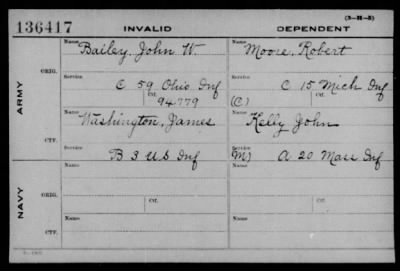 (3-21-5)
136417 INVALID DEPENDENT
ARMY
ORIG.
Name Bailey, John W. Name Moore, Robert
Service C 59 Ohio Inf Service C 15 Mich Inf
Ctf. 94779 (C) Ctf.
CTF.
Name Washington, James Name Kelly John
Service B 3 U S Inf Service (M) A 20 Mass Inf
NAVY
ORIG.
Name Name
Service Ctf. Service Ctf.
CTF.
Name Name
Service Service